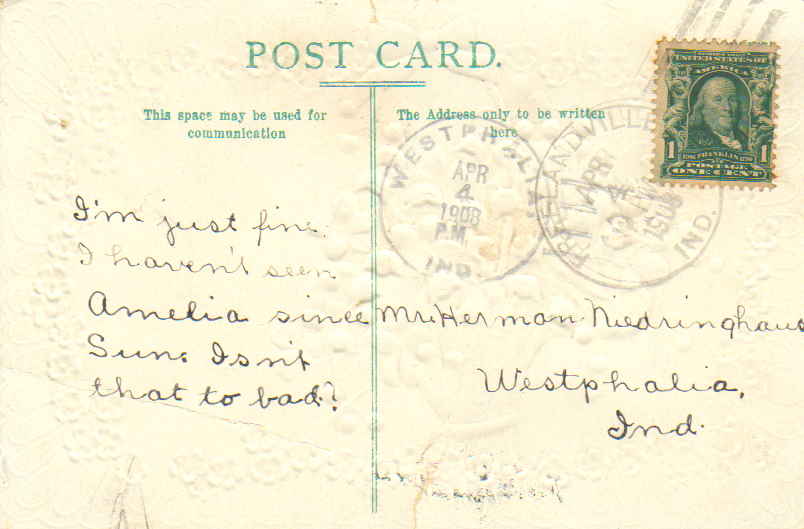 POST CARD.
This space may be used for
communication
The Address only to be written
here
UNITED STATES OF
AMERICA
1 1
POSTAGE
ONE CENT
WESTPHALIA
APR
4
1908
P.M.
IND.
FREELANDVILLE
APR
4
1908
IND.
I'm just fine.
I haven't seen
Amelia since
Sun. Isn't
that to bad?
Mr. Herman Niedringhaus
Westphalia,
Ind.